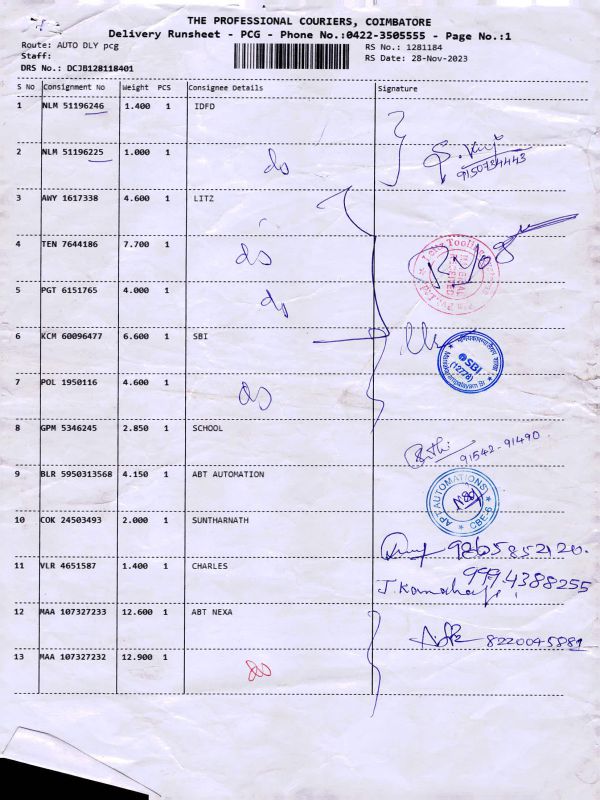 THE PROFESSIONAL COURIERS, COIMBATORE
Delivery Runsheet - PCG - Phone No.:0422-3505555 - Page No.:1
Route: AUTO DLY pcg RS No.: 1281184
Staff: RS Date: 28-Nov-2023
DRS No.: DCJB128118401
S No Consignment No Weight PCS Consignee Details Signature
1 NLM 51196246 1.400 1 IDFD
2 NLM 51196225 1.000 1 do 9150734443
3 AWY 1617338 4.600 1 LITZ
4 TEN 7644186 7.700 1 do
5 PGT 6151765 4.000 1 do
6 KCM 60096477 6.600 1 SBI
SBI
(12778)
7 POL 1950116 4.600 1 do
8 GPM 5346245 2.850 1 SCHOOL 91542-91490
9 BLR 5950313568 4.150 1 ABT AUTOMATION
APT AUTOMATIONS CBE-6
10 COK 24503493 2.000 1 SUNTHARNATH 9265852120
11 VLR 4651587 1.400 1 CHARLES 9994388255
12 MAA 107327233 12.600 1 ABT NEXA 8220045881
13 MAA 107327232 12.900 1 do